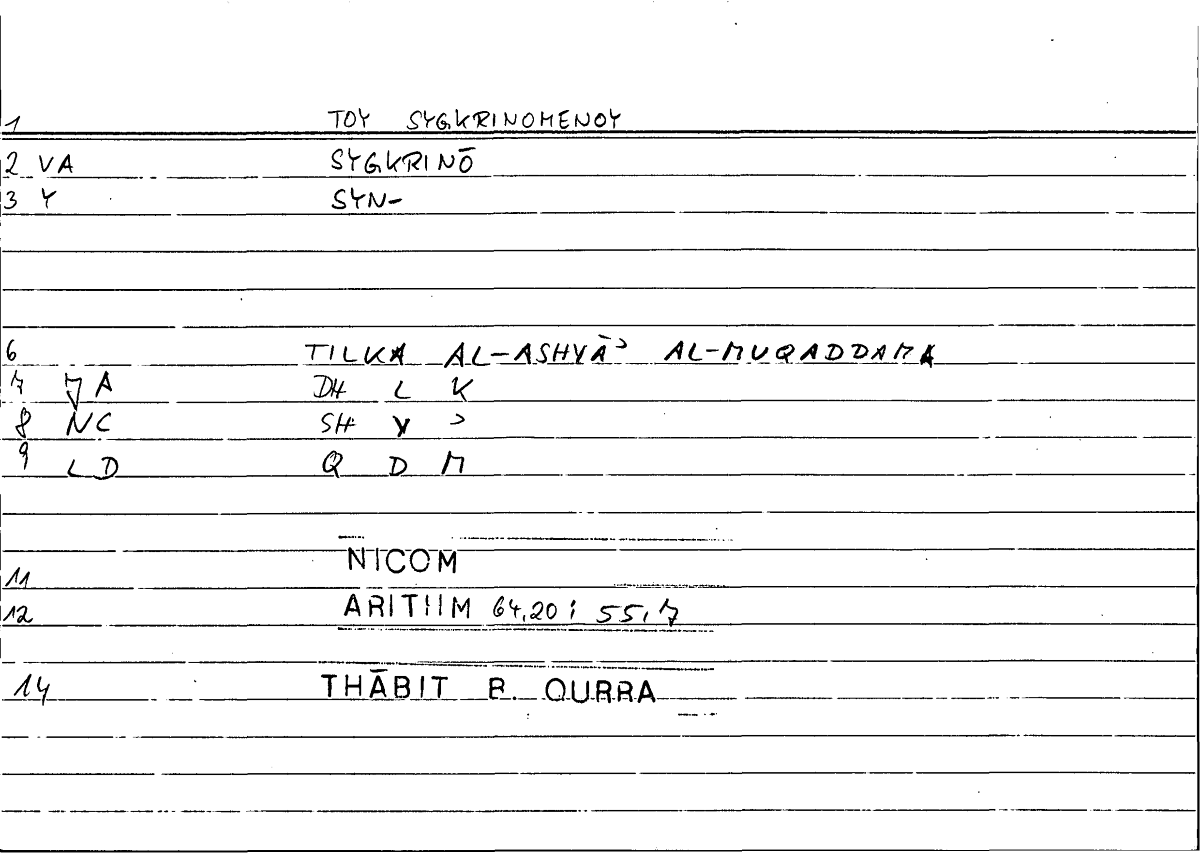 1 TOY SYGKRINOMENOY
2 VA SYGKRINŌ
3 Y SYN-
6 TILKA AL-ASHYĀʾ AL-MUQADDAMA
7 JA DH L K
8 NC SH Y ʾ
9 LD Q D M
11 NICOM
12 ARITHM 64,20; 55,7
14 THĀBIT B. QURRA